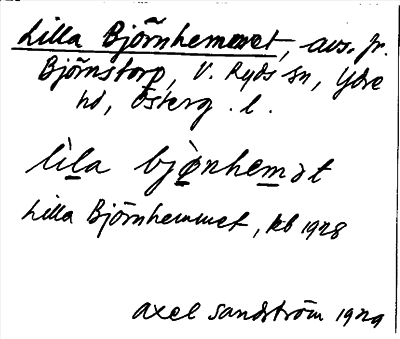 Lilla Björnhemmet, avs. fr.
Björnstorp, V. Ryds sn, Ydre
hd, Österg. l.
lìla bjǿnhemət
Lilla Björnhemmet, kb 1928
Axel Sandström 1929